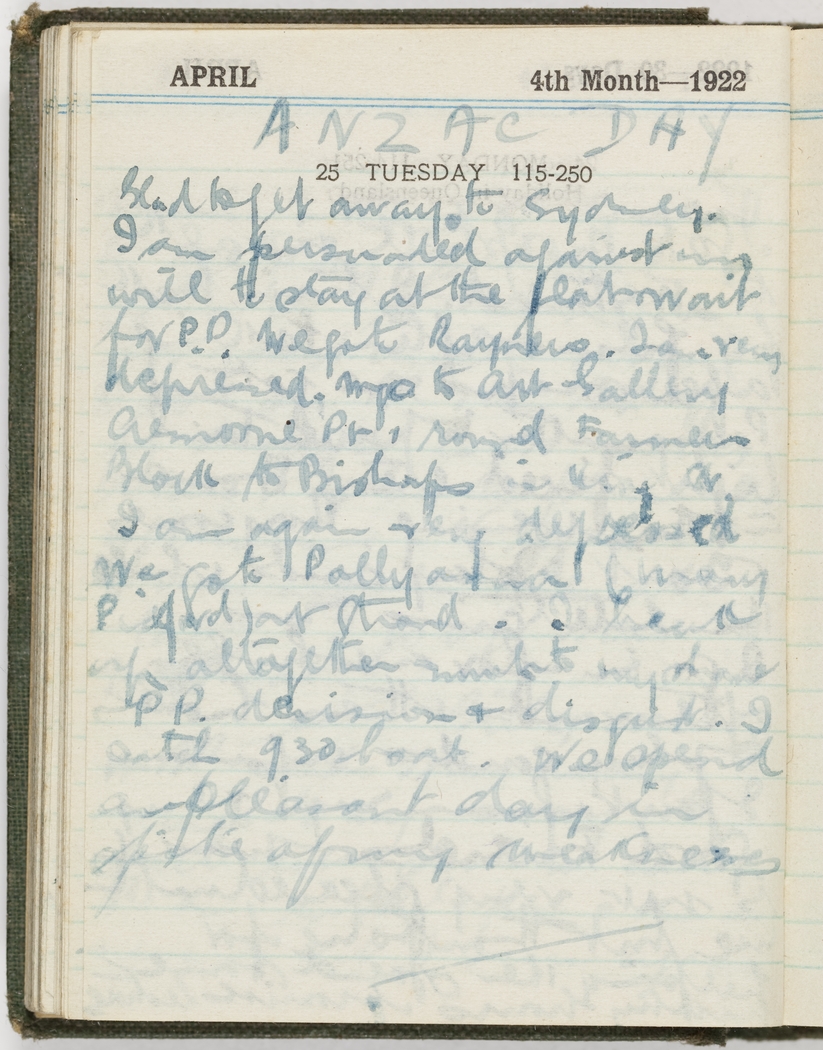 APRIL 4th Month—1922
ANZAC DAY
25 TUESDAY 115-250
Glad to get away to Sydney.
I am persuaded against my
will to stay at the flat & wait
for P.P. We go to Rayners. I am very
depressed. We go to Art Gallery
Cremorne Pt, round Farmers
Block to Bishops
I am again very depressed
We go to Pollyanna (Mary
Pickford) at Strand. break
up altogether
P.P. derision & disgust. I
catch 930 boat. We spend
a pleasant day in
spite of my weakness